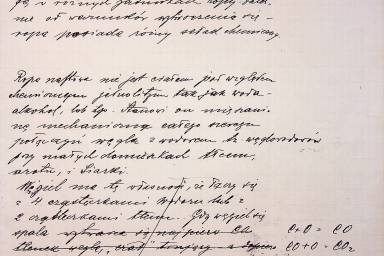 się w różnych
nie od warunków wytworzenia się
ropa posiada różny skład chemiczny.
Ropa naftowa nie jest czałem pod względem
chemicznym jednolitym tak jak woda
alkohol, lub tp. Stanowi on mięszani
nę mechaniczną całego szeregu
połączeń węgla z wodorem tz węglowodorów
przy małych domieszkach tlenu,
azotu, i siarki.
Węgiel ma tę własność, że łączy się
z 4 cząsteczkami wodoru lub z
2 cząsteczkami tlenu. Gdy węgiel się
spala wytwarza się najpierw
tlenek węgla, a dopiero
C+O = CO
CO+O = CO2